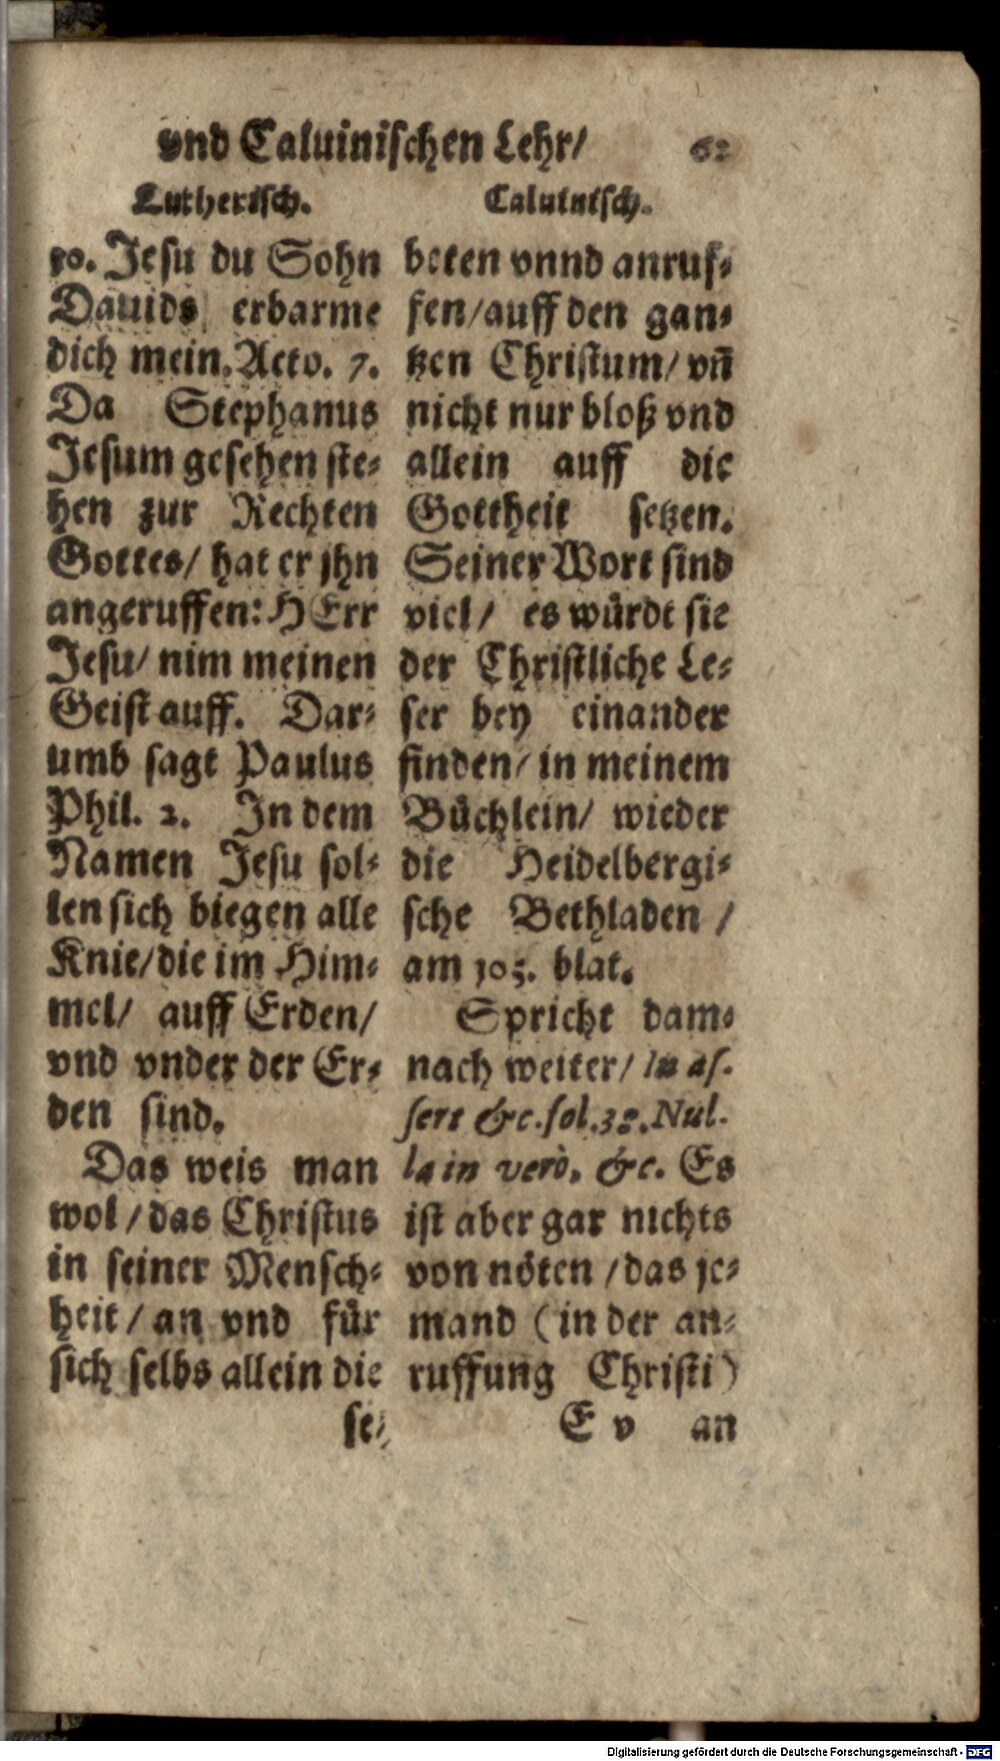 vnd Caluinischen Lehr/ 62
Lutherisch.
10. Jesu du Sohn
Dauids erbarme
dich mein. Acto. 7.
Da Stephanus
Jesum gesehen ste-
hen zur Rechten
Gottes/ hat er jhn
angeruffen: HErr
Jesu/ nim meinen
Geist auff. Dar-
umb sagt Paulus
Phil. 2. In dem
Namen Jesu sol-
len sich biegen alle
Knie/die im Him-
mel/ auff Erden/
vnd vnder der Er-
den sind.
Das weis man
wol/das Christus
in seiner Mensch-
heit/ an vnd für
sich selbs allein die
se-
Caluinisch.
beten vnnd anruf-
fen/auff den gan-
tzen Christum/ vn̄
nicht nur bloß vnd
allein auff die
Gottheit setzen.
Seiner Wort sind
viel/ es würdt sie
der Christliche Le-
ser bey einander
finden/ in meinem
Büchlein/ wieder
die Heidelbergi-
sche Bethladen/
am 105. blat.
Spricht dam-
nach weiter/ In as-
sert &c. fol. 38. Nul-
la in verò, &c. Es
ist aber gar nichts
von nöten/das je-
mand (in der an-
ruffung Christi)
E v an
Digitalisierung gefördert durch die Deutsche Forschungsgemeinschaft - DFG